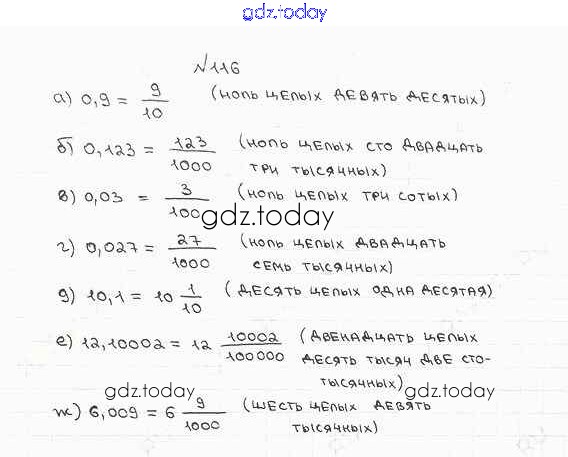 gdz.today
№116
а) 0,9 = 9/10 (ноль целых девять десятых)
б) 0,123 = 123/1000 (ноль целых сто двадцать
три тысячных)
в) 0,03 = 3/100 (ноль целых три сотых)
gdz.today
г) 0,027 = 27/1000 (ноль целых двадцать
семь тысячных)
д) 10,1 = 10 1/10 (десять целых одна десятая)
е) 12,10002 = 12 10002/100000 (двенадцать целых
десять тысяч две сто-
тысячных)
gdz.today
gdz.today
ж) 6,009 = 6 9/1000 (шесть целых девять
тысячных)